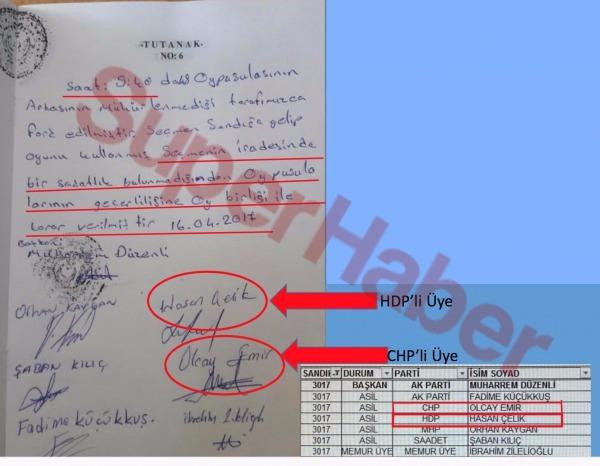 -TUTANAK-
NO: 6
Saat: 9:40 daki Oypusulasının
Arkasının Mühürlenmediği tarafımızca
fark edilmiştir. Seçmen Sandığa gelip
oyunu kullanmış Seçmenin iradesinde
bir sakatlık bulunmadığından Oypusula
larının geçerliliğine Oy birliği ile
karar verilmiştir 16.04.2017
Başkan
Muharrem Düzenli
Orhan KAYGAN
Hasan Çelik
HDP'li Üye
ŞABAN KILIÇ
Olcay Emir
CHP'li Üye
Fadime Küçükkuş.
İbrahim
SuperHaber
SANDIK DURUM PARTİ İSİM SOYAD
3017 BAŞKAN AK PARTİ MUHARREM DÜZENLİ
3017 ASİL AK PARTİ FADİME KÜÇÜKKUŞ
3017 ASİL CHP OLCAY EMİR
3017 ASİL HDP HASAN ÇELİK
3017 ASİL MHP ORHAN KAYGAN
3017 ASİL SAADET ŞABAN KILIÇ
3017 MEMUR ÜYE MEMUR ÜYE İBRAHİM ZİLELİOĞLU